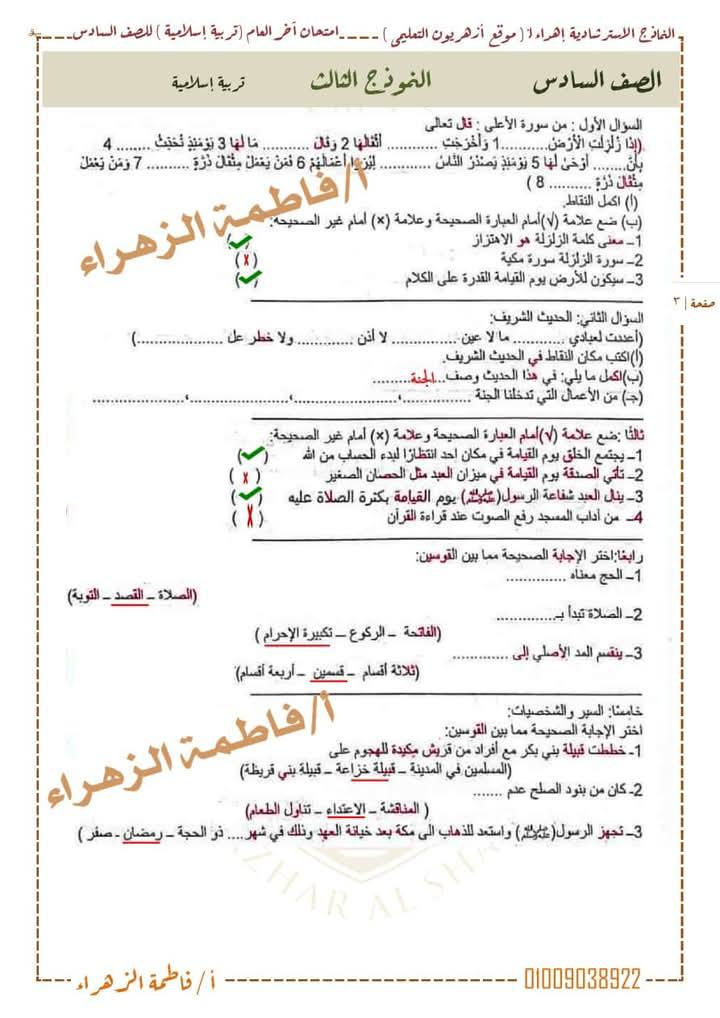 النماذج الاسترشادية إهداء / ( موقع أزهريون التعليمي ) ـــــ امتحان آخر العام (تربية إسلامية ) للصف السادس
الصف السادس النموذج الثالث تربية إسلامية
صفحة | ٣
السؤال الأول : من سورة الأعلى : قال تعالى
(إِذَا زُلْزِلَتِ الْأَرْضُ...........1 وَأَخْرَجَتِ ............ أَثْقَالَهَا 2 وَقَالَ ........... مَا لَهَا 3 يَوْمَئِذٍ تُحَدِّثُ ........ 4
بِأَنَّ........ أَوْحَىٰ لَهَا 5 يَوْمَئِذٍ يَصْدُرُ النَّاسُ ............ لِيُرَوْا أَعْمَالَهُمْ 6 فَمَن يَعْمَلْ مِثْقَالَ ذَرَّةٍ .......... 7 وَمَن يَعْمَلْ
مِثْقَالَ ذَرَّةٍ .......... 8 )
(أ) اكمل النقاط.
(ب) ضع علامة (√)أمام العبارة الصحيحة وعلامة (×) أمام غير الصحيحة:
1ـ معنى كلمة الزلزلة هو الاهتزاز (✓)
2ـ سورة الزلزلة سورة مكية (x)
3ـ سيكون للأرض يوم القيامة القدرة على الكلام (✓)
أ/فاطمة الزهراء
السؤال الثاني: الحديث الشريف:
(أعددت لعبادي ............ ما لا عين .............. لا أذن ............. ولا خطر عل ...................)
(أ)اكتب مكان النقاط في الحديث الشريف.
(ب)اكمل ما يلي: في هذا الحديث وصف...الجنة.........
(جـ) من الأعمال التي تدخلنا الجنة ................،................،................،................
ثالثًا :ضع علامة (√)أمام العبارة الصحيحة وعلامة (×) أمام غير الصحيحة:
1ـ يجتمع الخلق يوم القيامة في مكان إحد انتظارًا لبدء الحساب من الله (✓)
2ـ تأتي الصدقة يوم القيامة في ميزان العبد مثل الحصان الصغير (x)
3ـ ينال العبد شفاعة الرسول(ﷺ) يوم القيامة بكثرة الصلاة عليه (✓)
4ـ من آداب المسجد رفع الصوت عند قراءة القرآن (X)
رابعًا: اختر الإجابة الصحيحة مما بين القوسين:
1ـ الحج معناه .............
(الصلاة ـ القصد ـ التوبة)
2ـ الصلاة تبدأ بـ.............
(الفاتحة ـ الركوع ـ تكبيرة الإحرام )
3ـ ينقسم المد الأصلي إلى .............
(ثلاثة أقسام ـ قسمين ـ أربعة أقسام)
خامسًا: السير والشخصيات:
اختر الإجابة الصحيحة مما بين القوسين:
1ـ خططت قبيلة بني بكر مع أفراد من قريش مكيدة للهجوم على
(المسلمين في المدينة ـ قبيلة خزاعة ـ قبيلة بني قريظة)
2ـ كان من بنود الصلح عدم .......
( المناقشة ـ الاعتداء ـ تناول الطعام)
3ـ تجهز الرسول(ﷺ) واستعد للذهاب الى مكة بعد خيانة العهد وذلك في شهر.... ذو الحجة ـ رمضان ـ صفر )
أ/فاطمة الزهراء
ZHAR AL SHA
01009038922 أ/ فاطمة الزهراء